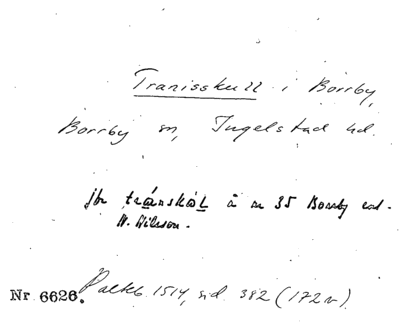 Tranisskull i Borrby,
Borrby sn, Ingelstad hd.
jfr tránskàl å n 35 Borrby enl.
N. Nilsson.
Nr 6626. Palteb. 1514, sid. 382 (172 v).